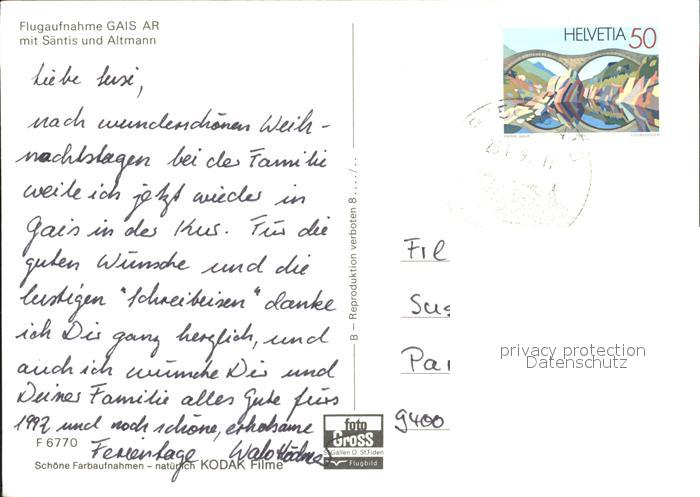 Flugaufnahme GAIS AR
mit Säntis und Altmann
Liebe Susi,
nach wunderschönen Weih-
nachtstagen bei der Familie
weile ich jetzt wieder in
Gais in der Kur. Für die
guten Wünsche und die
lustigen "Schreibeisen" danke
ich Dir ganz herzlich, und
auch ich wünsche Dir und
Deiner Familie alles Gute fürs
1992 und noch schöne, erholsame
Ferientage
F 6770
Schöne Farbaufnahmen – natürlich KODAK Filme
B – Reproduktion verboten 8..../..
foto
GROSS
St. Gallen O St. Fiden
Flugbild
HELVETIA 50
Frl
Sus
Par
9400
privacy protection
Datenschutz